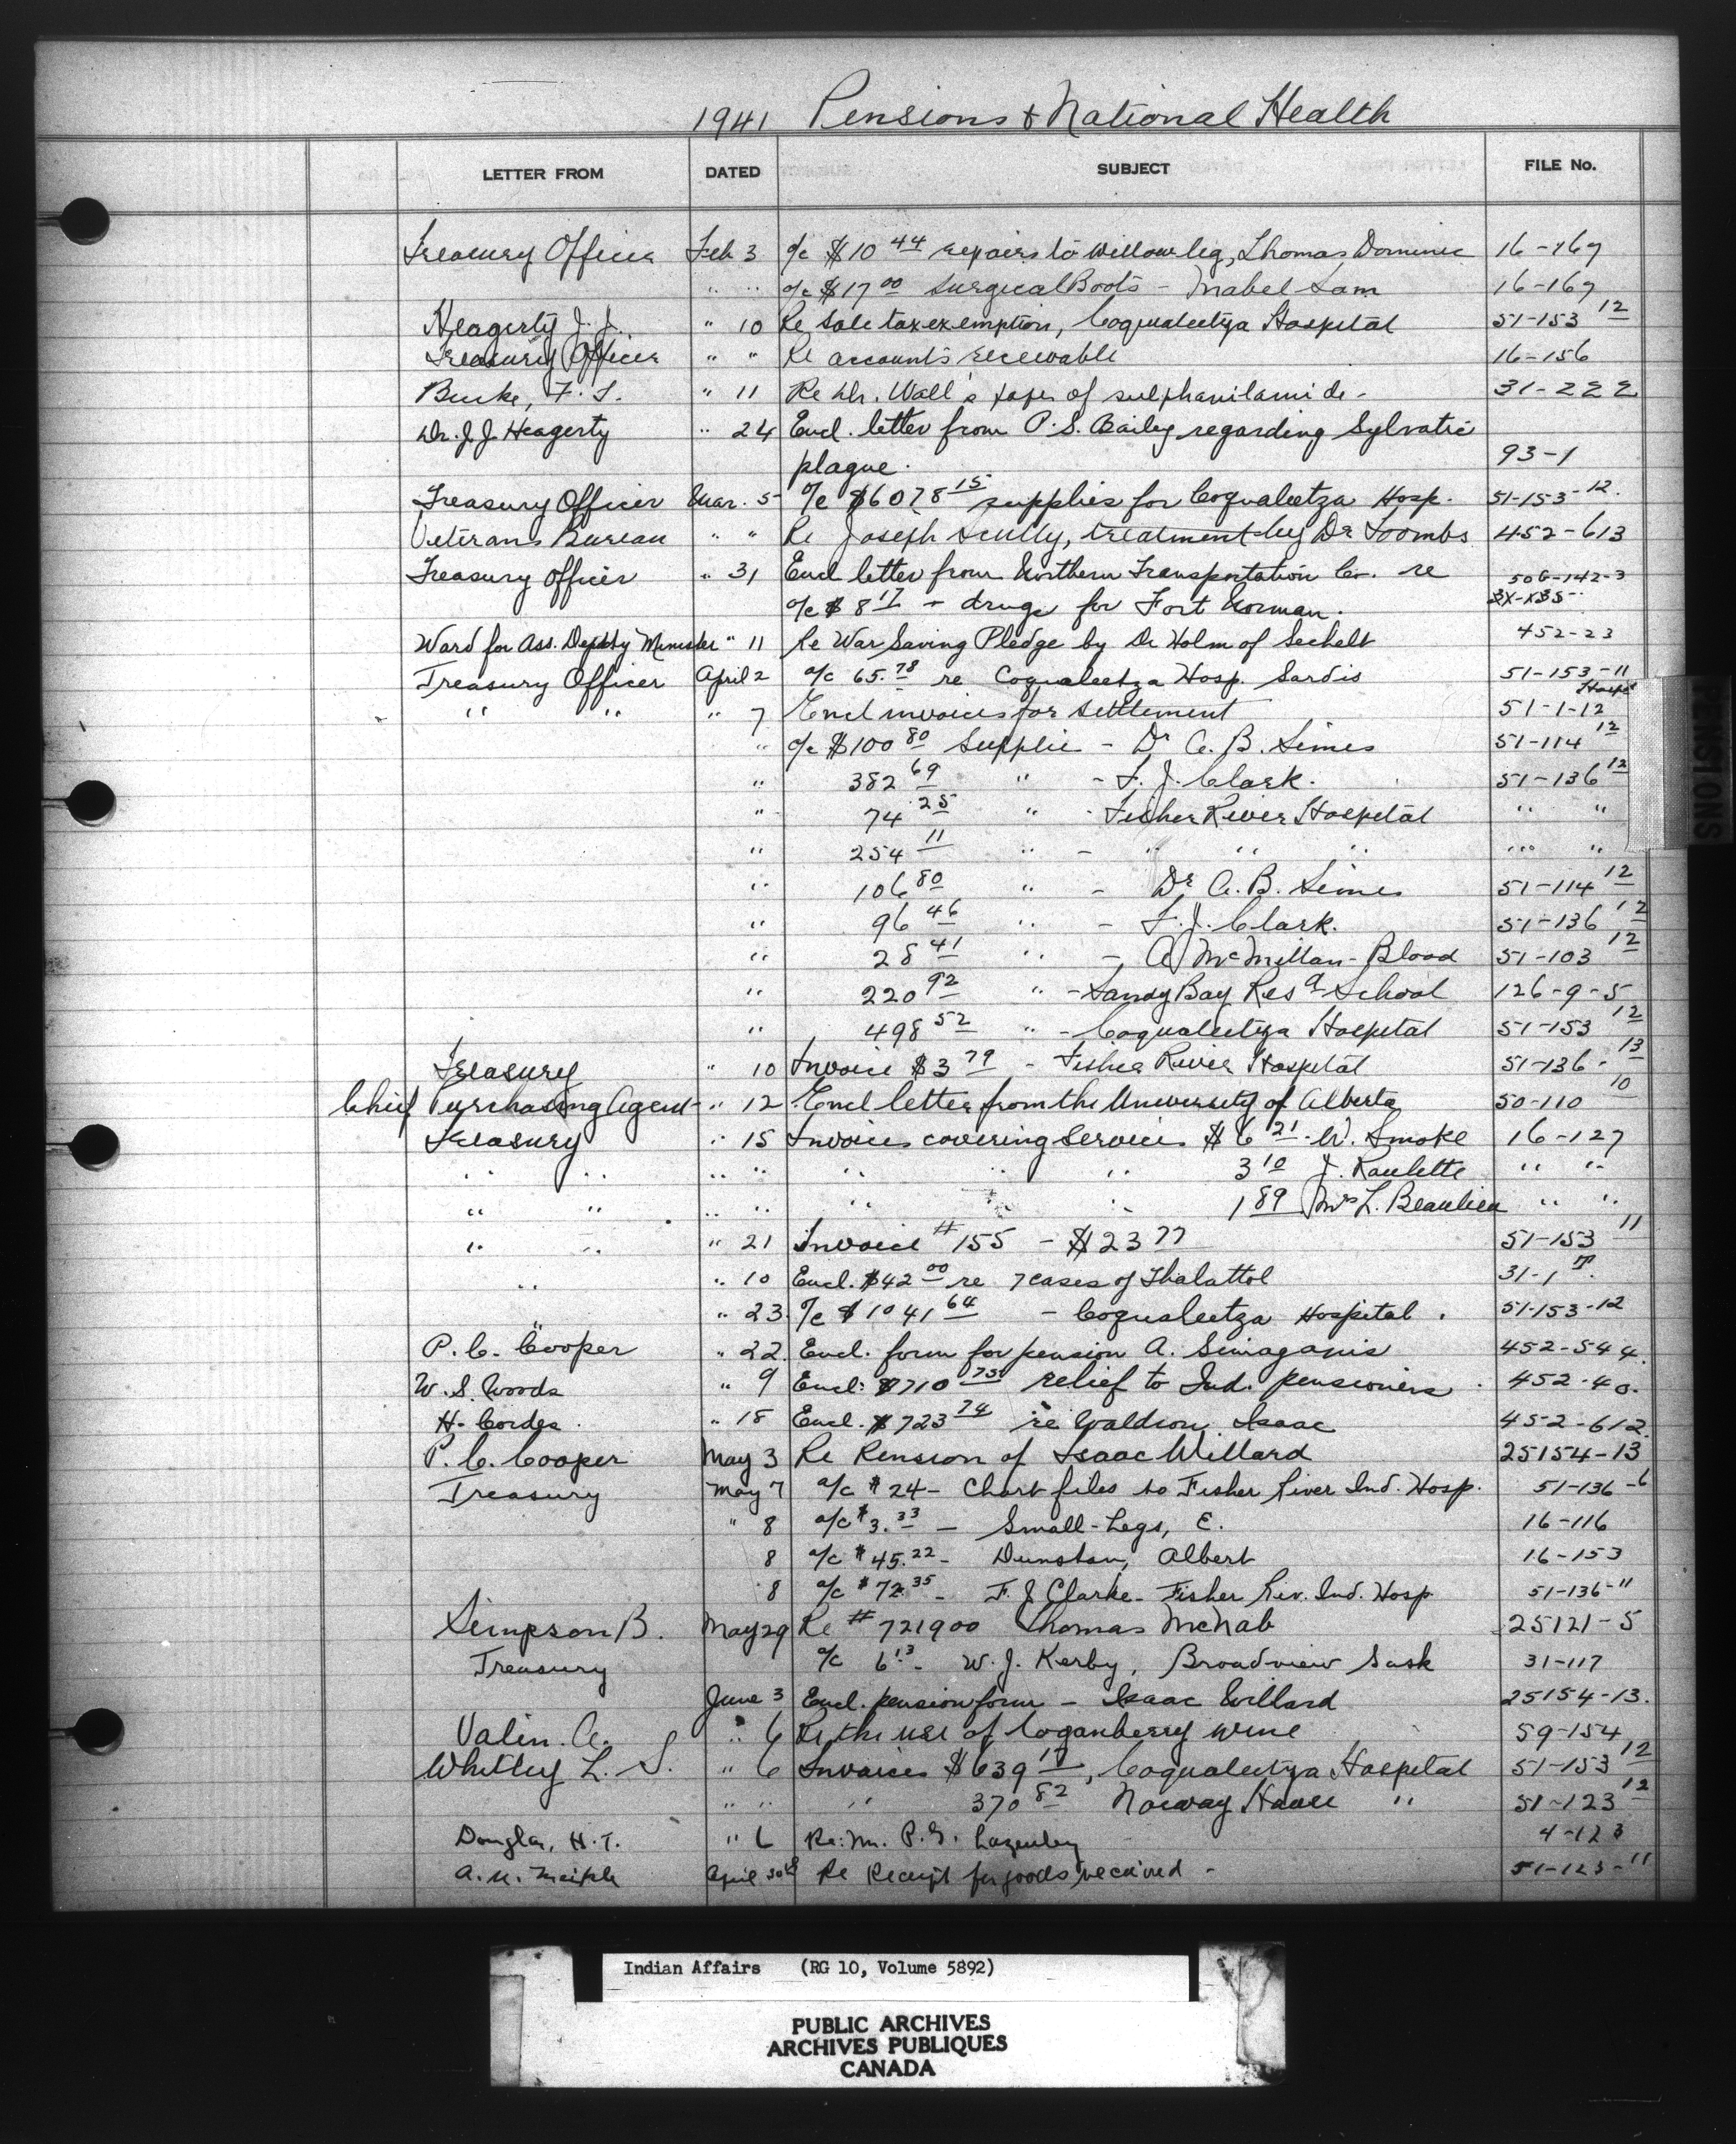 1941 Pensions & National Health
LETTER FROM DATED SUBJECT FILE No.
Treasury Officer Feb 3 a/c $10 44 repairs to Willow leg, Thomas Dominic 16-167
" " a/c $17 00 Surgical Boots - Mabel Sam 16-167
Heagerty J. J. " 10 Re Sale tax exemption, Coqualeetza Hospital 51-153 12
Treasury Officer " " Re accounts receivable 16-156
Burke, F. S. " 11 Re Dr. Wall's paper of sulphanilamide - 31-222
Dr. J. J. Heagerty " 24 Encl. letter from P. S. Bailey regarding Sylvatic
plague. 93-1
Treasury Officer Mar. 5 a/c $6078 15 supplies for Coqualeetza Hosp. 51-153-12.
Veterans Bureau " " Re Joseph Scully, treatment by Dr Toombs 452-613
Treasury Officer " 31 Encl letter from Northern Transportation Co. re 506-142-3
a/c $ 8 17 - drugs for Fort Norman.
Ward for Ass. Deputy Minister " 11 Re War Saving Pledge by Dr Holm of Sechelt 452-23
Treasury Officer April 2 a/c 65.78 re Coqualeetza Hosp. Sardis 51-153-11
" " " 7 Encl invoices for settlement 51-1-12
" a/c $100 80 Supplies - Dr A. B. Simes 51-114 12
" 382 69 " - F. J. Clark. 51-136 12
" 74 25 " - Fisher River Hospital " "
" 254 11 " - " " " " "
" 106 80 " - Dr A. B. Simes 51-114 12
" 96 46 " - F. J. Clark. 51-136 12
" 28 41 " - A McMillan - Blood 51-103 12
" 220 92 " - Sandy Bay Res a School 126-9-5
" 498 52 " - Coqualeetza Hospital 51-153 12
Treasury " 10 Invoice $3 79 - Fisher River Hospital 51-136-13
Chief Purchasing Agent - " 12 Encl letter from the University of Alberta 50-110 10
Treasury " 15 Invoices covering services $6 21 - W. Smoke 16-127
" " " " " " " 3 10 J. Raulette " "
" " " " " " " 1 89 Mrs L. Beaulieu " "
" " " 21 Invoice #155 - $23 77 51-153 11
" " 10 Encl. $42 00 re 7 cases of Thalattol 31-1 T.
" 23 a/c $1041 64 - Coqualeetza Hospital. 51-153-12
P. C. Cooper " 22. Encl. form for pension A. Simaganis 452-544.
W. S. Woods " 9 Encl: $710 75 relief to Ind. pensioners. 452-40.
H. Cordes. " 18 Encl. $723 74 re Waldron Isaac 452-612.
P. C. Cooper May 3 Re Pension of Isaac Willard 25154-13
Treasury May 7 a/c $24- Chart files to Fisher River Ind. Hosp. 51-136-6
" 8 a/c $3.33 - Small-Legs, E. 16-116
8 a/c $45.22 - Dunstan, Albert 16-153
8 a/c $72.35 - F. J Clarke - Fisher Riv. Ind. Hosp 51-136-11
Simpson B. May 29 Re #721900 Thomas McNab 25121-5
Treasury a/c 6 13 - W. J. Kerby, Broadview Sask 31-117
June 3 Encl. pension form - Isaac Willard 25154-13.
Valin. A. " 6 Re the use of Loganberry wine 59-154
Whitley L. S. " 6 Invoices $639 17, Coqualeetza Hospital 51-153 12
" " " 370 82 Norway House " 51-123 12
Douglas, H. T. " 6 Re: Mr. P. G. Lazenby 4-123
April 30th Re Receipt for goods received - 51-123-11
PENSIONS
Indian Affairs (RG 10, Volume 5892)
PUBLIC ARCHIVES
ARCHIVES PUBLIQUES
CANADA